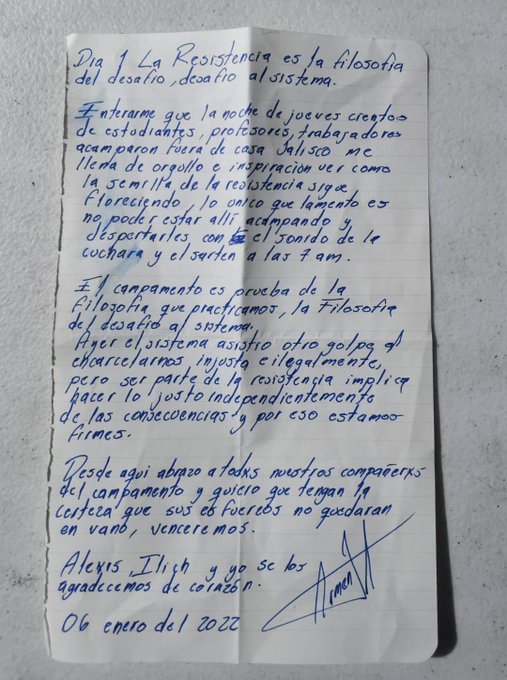 Dia 1 La Resistencia es la filosofia
del desafio, desafio al sistema.
Enterarme que la noche de jueves cientos
de estudiantes, profesores, trabajadores
acamparon fuera de casa Jalisco me
llena de orgullo e inspiración ver como
la semilla de la resistencia sigue
floreciendo, lo unico que lamento es
no poder estar allí acampando y
despertarles con el sonido de la
cuchara y el sarten a las 7 am.
El campamento es prueba de la
filosofia que practicamos, la Filosofia
del desafio al sistema.
Ayer el sistema asistio otro golpe al
encarcelarnos injusta e ilegalmente,
pero ser parte de la resistencia implica
hacer lo justo independientemente
de las consecuencias y por eso estamos
firmes.
Desde aqui abrazo a todxs nuestros compañerxs
del campamento y quiero que tengan la
certeza que sus esfuerzos no quedaran
en vano, venceremos.
Alexis, Ilich y yo se los
agradecemos de corazón.
06 enero del 2022